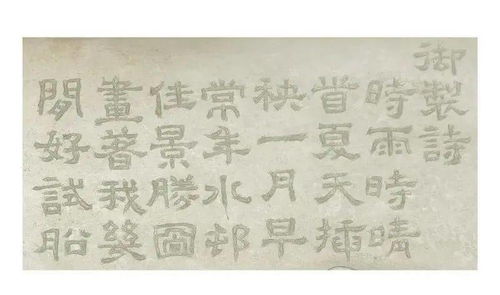 御製詩
時雨時晴
首夏天插
秧一月早
常年水邨
佳景勝圖
畫著我
閒好試船